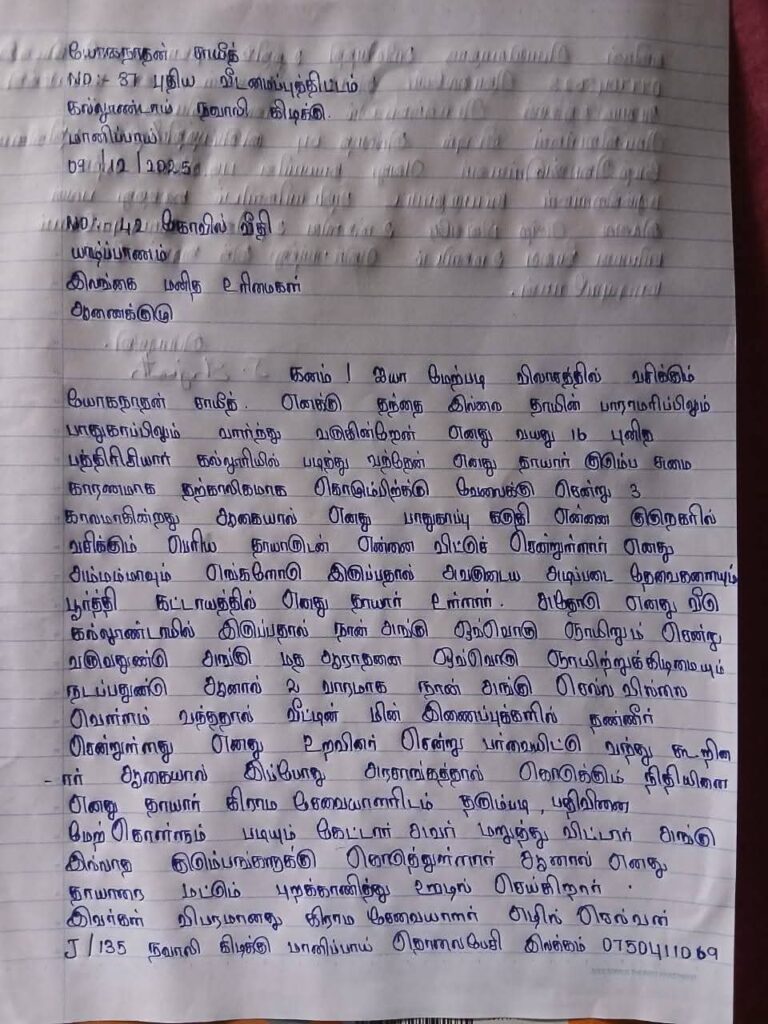 யோகநாதன் சாயித்
NO :- 87 புதிய வீடமைப்புத்திட்டம்
கல்லுண்டாய் நவாலி கிழக்கு.
மானிப்பாய்
09/12/2025
NO :- 42 கோவில் வீதி
யாழ்ப்பாணம்
இலங்கை மனித உரிமைகள்
ஆணைக்குழு
கனம் ! ஐயா மேற்படி விலாசத்தில் வசிக்கும்
யோகநாதன் சாயித். எனக்கு தந்தை இல்லை தாயின் பாராமரிப்பிலும்
பாதுகாப்பிலும் வாழ்ந்து வருகின்றேன் எனது வயது 16 புனித
பத்திரிசியார் கல்லூரியில் படித்து வந்தேன் எனது தாயார் குடும்ப சுமை
காரணமாக தற்காலிகமாக கொழும்பிற்க்கு வேலைக்கு சென்று 3
காலமாகின்றது ஆகையால் எனது பாதுகாப்பு கருதி என்னை குருநகரில்
வசிக்கும் பெரிய தாயாடுடன் என்னை விட்டுச் சென்றுள்ளார் எனது
அம்மம்மாவும் எங்களோடு இருப்பதால் அவருடைய அடிப்படை தேவைகளையும்
பூர்த்தி கட்டாயத்தில் எனது தாயார் உள்ளார். அதோடு எனது வீடு
கல்லூண்டாயில் இருப்பதால் நான் அங்கு ஒவ்வொரு ஞாயிறும் சென்று
வருவதுண்டு அங்கு மத ஆராதனை ஒவ்வொரு ஞாயிற்றுக்கிழமையும்
நடப்பதுண்டு ஆனால் 2 வாரமாக நான் அங்கு செல்ல வில்லை
வெள்ளம் வந்ததால் வீட்டின் மின் இணைப்புக்களில் தண்ணீர்
சென்றுள்ளது எனது உறவினர் சென்று பார்வையிட்டு வந்து கூறின
- ார் ஆகையால் இப்போது அரசாங்கத்தால் கொடுக்கும் நிதியினை
எனது தாயார் கிராம சேவையாளரிடம் தரும்படி, பதிவினை
மேற்கொள்ளும் படியும் கேட்டார் அவர் மறுத்து விட்டார் அங்கு
இல்லாத குடும்பங்களுக்கு கொடுத்துள்ளார் ஆனால் எனது
தாயாரை மட்டும் புறக்கணித்து ஊழல் செய்கிறார்.
இவர்கள் விபரமானது கிராம சேவையாளர் எழில் செல்வன்
J/135 நவாலி கிழக்கு மானிப்பாய் தொலைபேசி இலக்கம் 0750411069